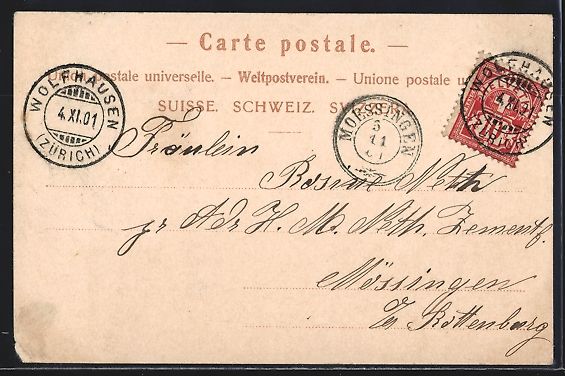 — Carte postale. —
Union postale universelle. — Weltpostverein. — Unione postale u
SUISSE. SCHWEIZ. SV
WOLFHAUSEN
4.XI.01
(ZÜRICH)
MOESSINGEN
5
11
WOLFHAUSEN
4.XI.01
(ZÜRICH)
10
Fräulein
Rosine Neth
pr Adr H. M. Neth, Zementf.
Mössingen
Rottenburg